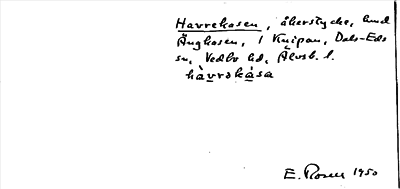 Havrekasen, åkerstycke, hund
Ängkasen, i Knipan, Dals-Eds
sn, Vedbo hd, Älvsb. l.
hàvrəkàsa
E. Rosen 1950